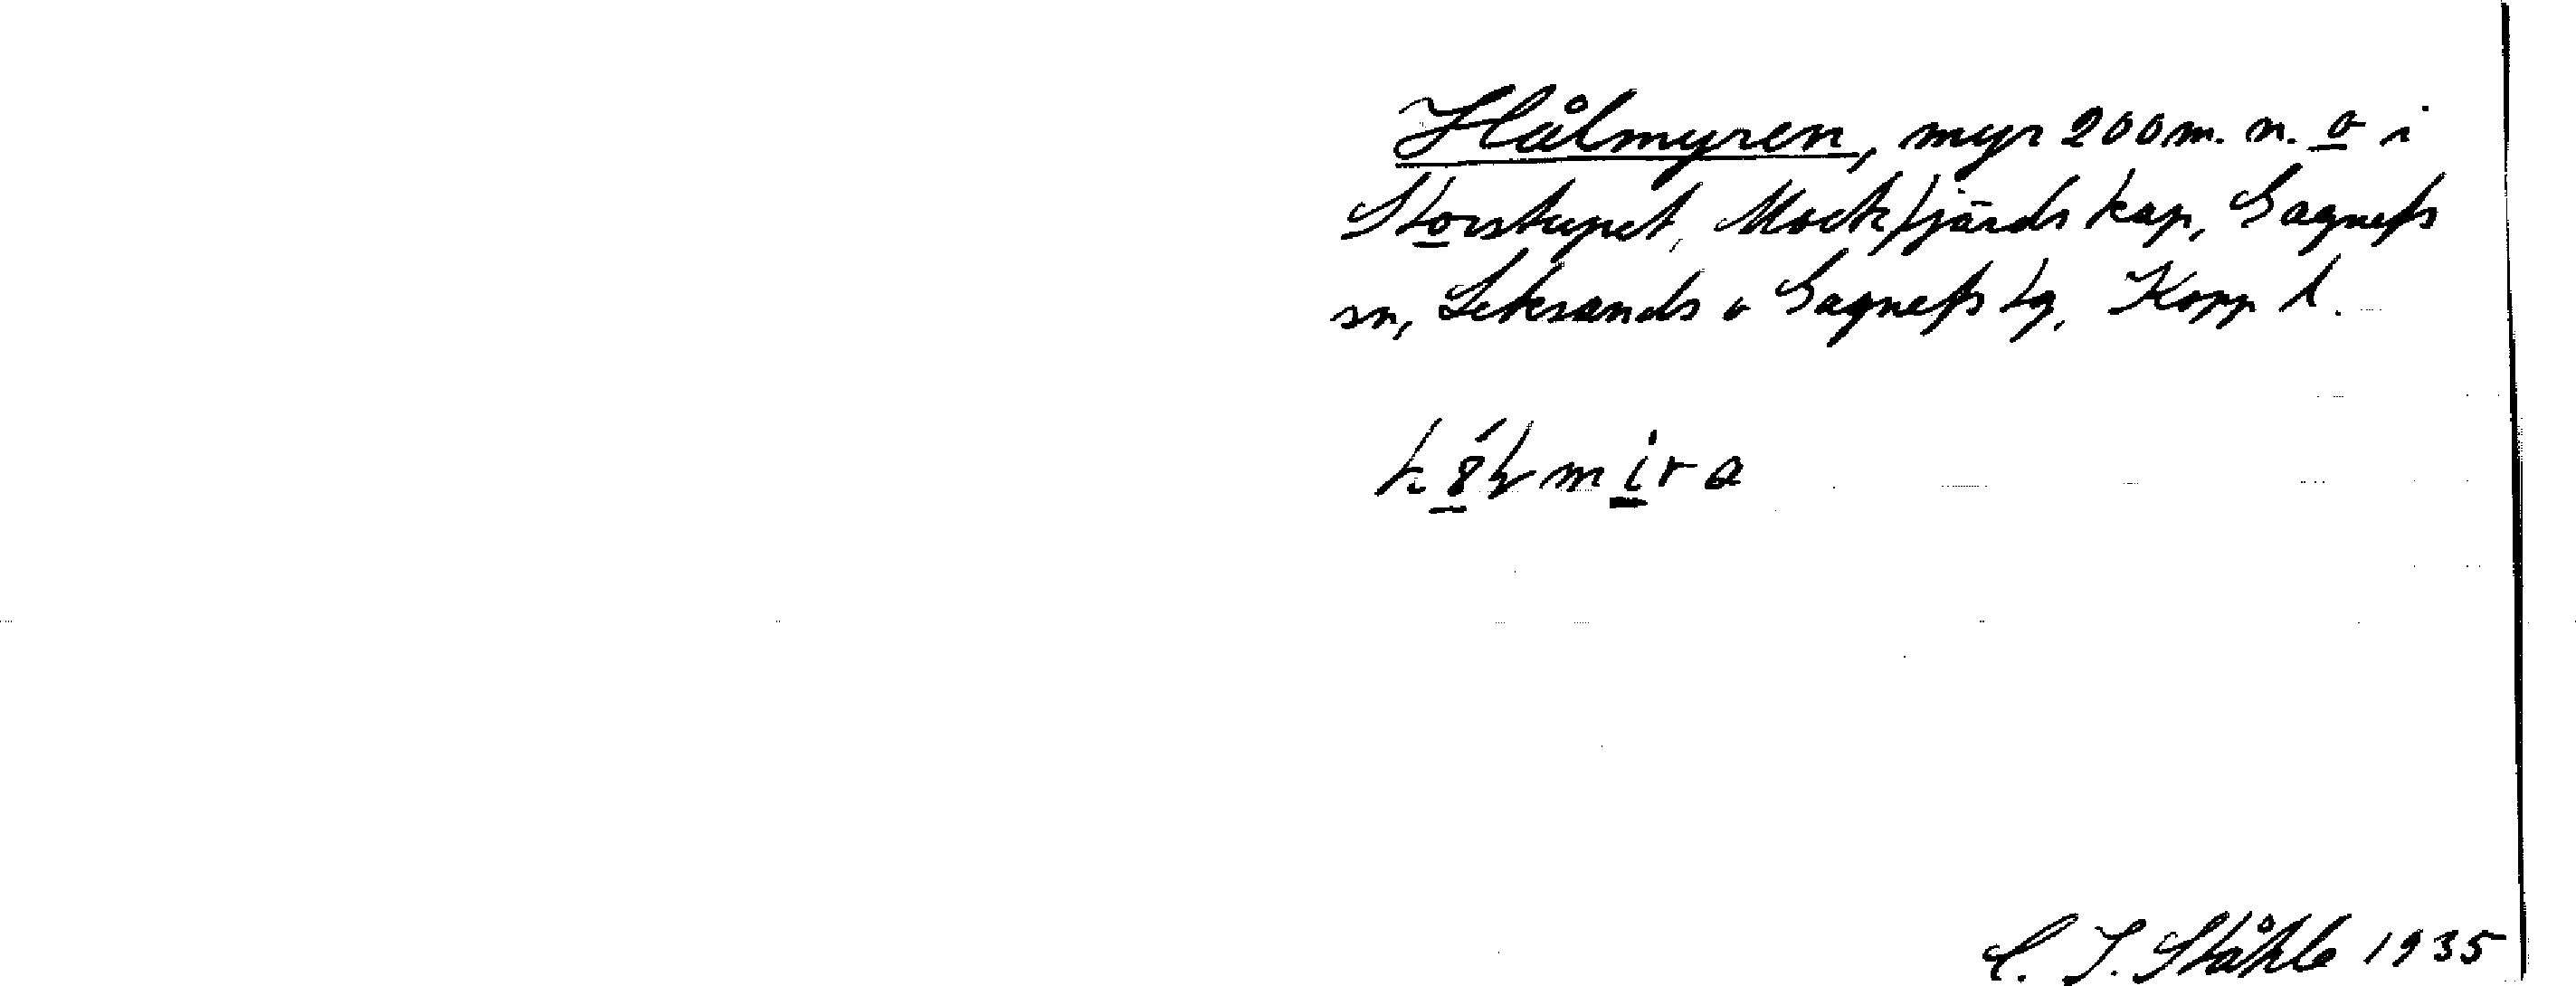 Hålmyren, myr 200 m. n. o i
Storstupet, Mockfjärds kap, Gagnefs
sn, Leksands o Gagnefs tg, Kopp l.
C. I. Ståhle 1935